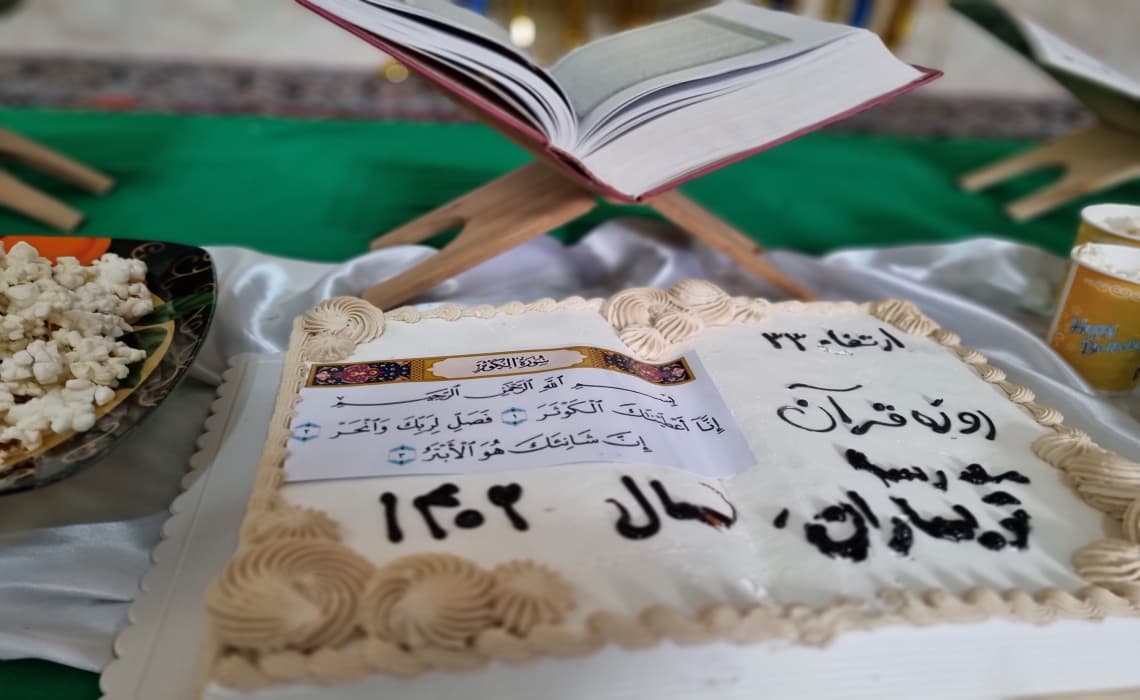 سُورَةُ الْكَوْثَرِ
بِسْمِ اللَّهِ الرَّحْمَٰنِ الرَّحِيمِ
إِنَّا أَعْطَيْنَاكَ الْكَوْثَرَ ١ فَصَلِّ لِرَبِّكَ وَانْحَرْ ٢
إِنَّ شَانِئَكَ هُوَ الْأَبْتَرُ ٣
ارتقاء ۳۳
دوره قرآن
مدرسه
سال ۱۴۰۲
Happy
Birthday